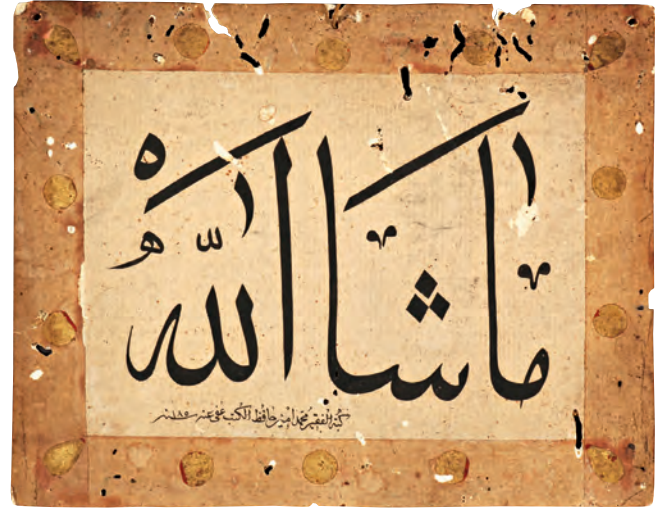 ما شا الله
كتبه الفقير محمد امين حافظ الكتب عفى عنه سنه